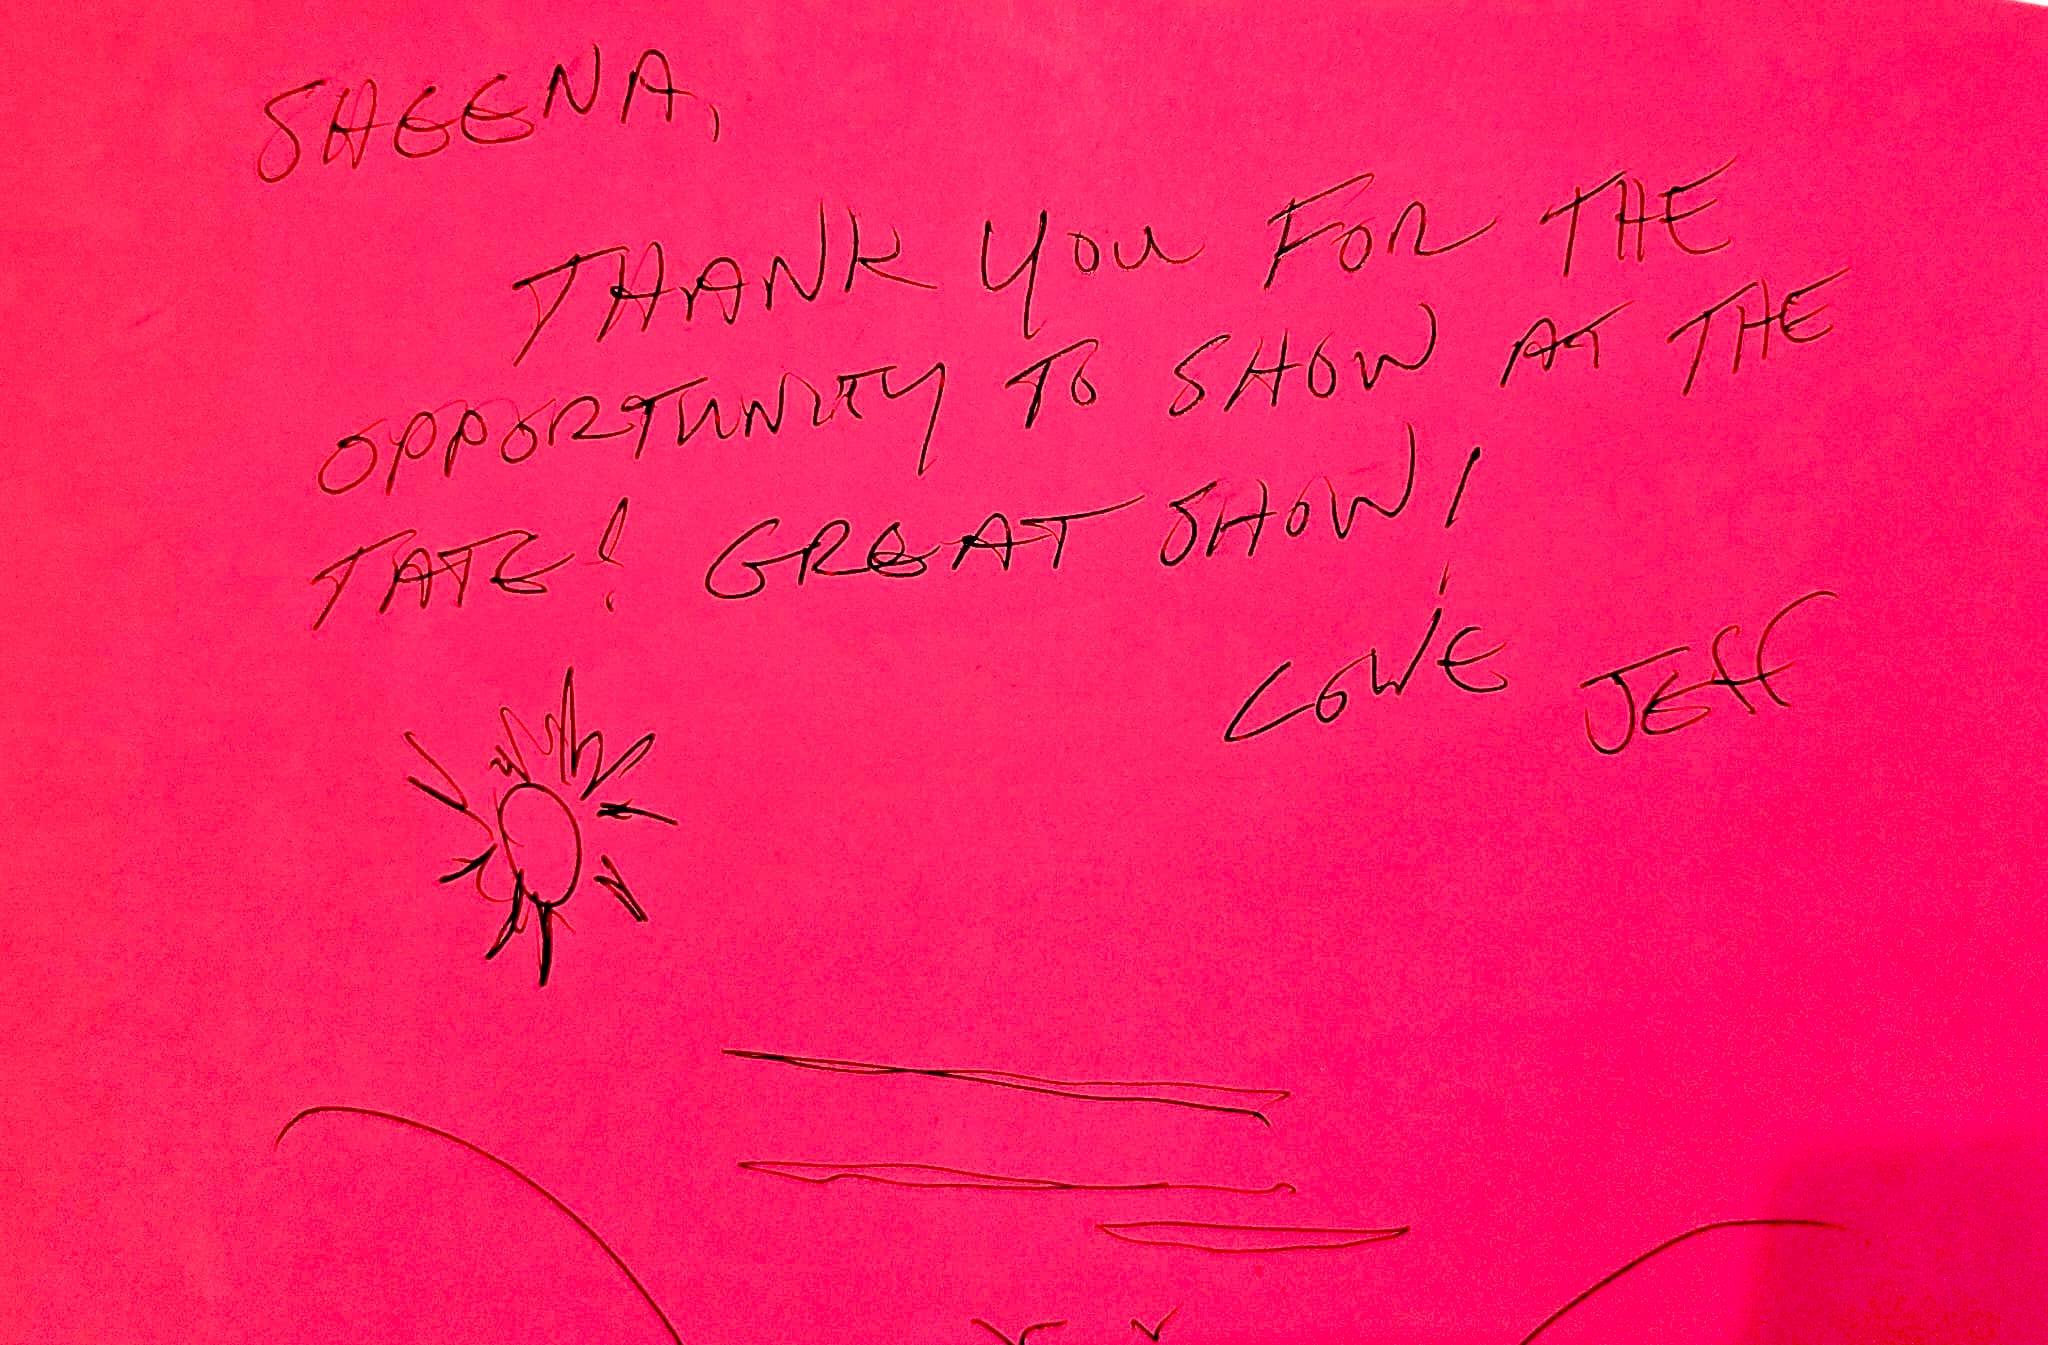 SHEENA,
THANK YOU FOR THE
OPPORTUNITY TO SHOW AT THE
TATE! GREAT SHOW!
LOVE JEFF